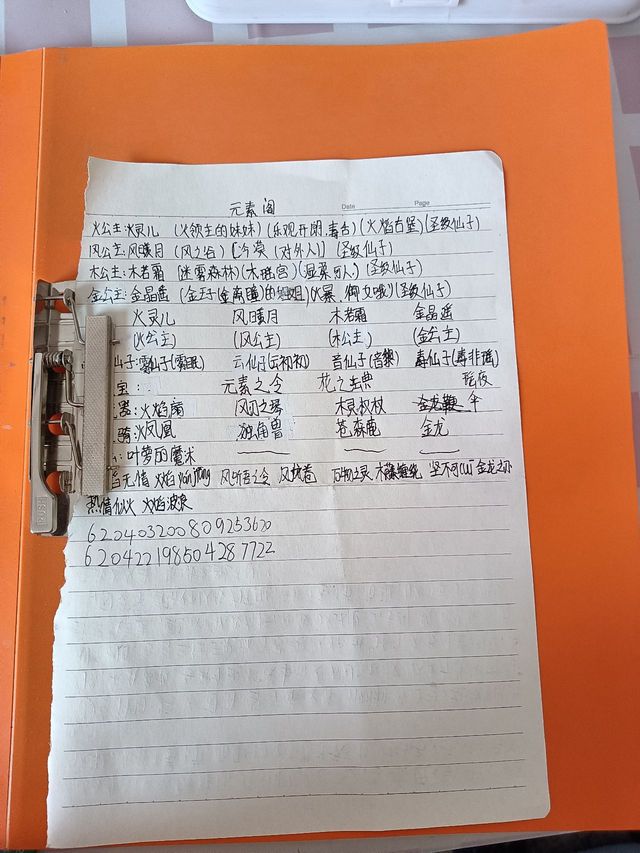 元素阁
Date Page
火公主:火灵儿 (火领主的妹妹)(乐观开朗,毒舌)(火焰古堡)(圣级仙子)
风公主:风曦月 (风之谷)(冷漠(对外人))(圣级仙子)
木公主:木若霜 (迷雾森林)(木琉宫)(温柔可人)(圣级仙子)
金公主:金晶遥 (金王子(金离瞳)的姐姐)(火暴,御女哦)(圣级仙子)
火灵儿 风曦月 木若霜 金晶遥
(火公主) (风公主) (木公主) (金公主)
仙子:霜仙子(霜眠) 云仙子(云初初) 音仙子(音黎) 毒仙子(毒非瑶)
宝: 元素之令 花之圣典 琉夜
器:火焰扇 风之琴 木灵杖 金龙鞭 伞
骑:火凤凰 独角兽 苍森鹿 金龙
:叶萝的魔术
无情 火焰 风听吾令 风纹卷 万物之灵 木藤缠绕 坚不可cuī 金龙之
热情似火 火焰波浪
620403200809253620
620422198504287722